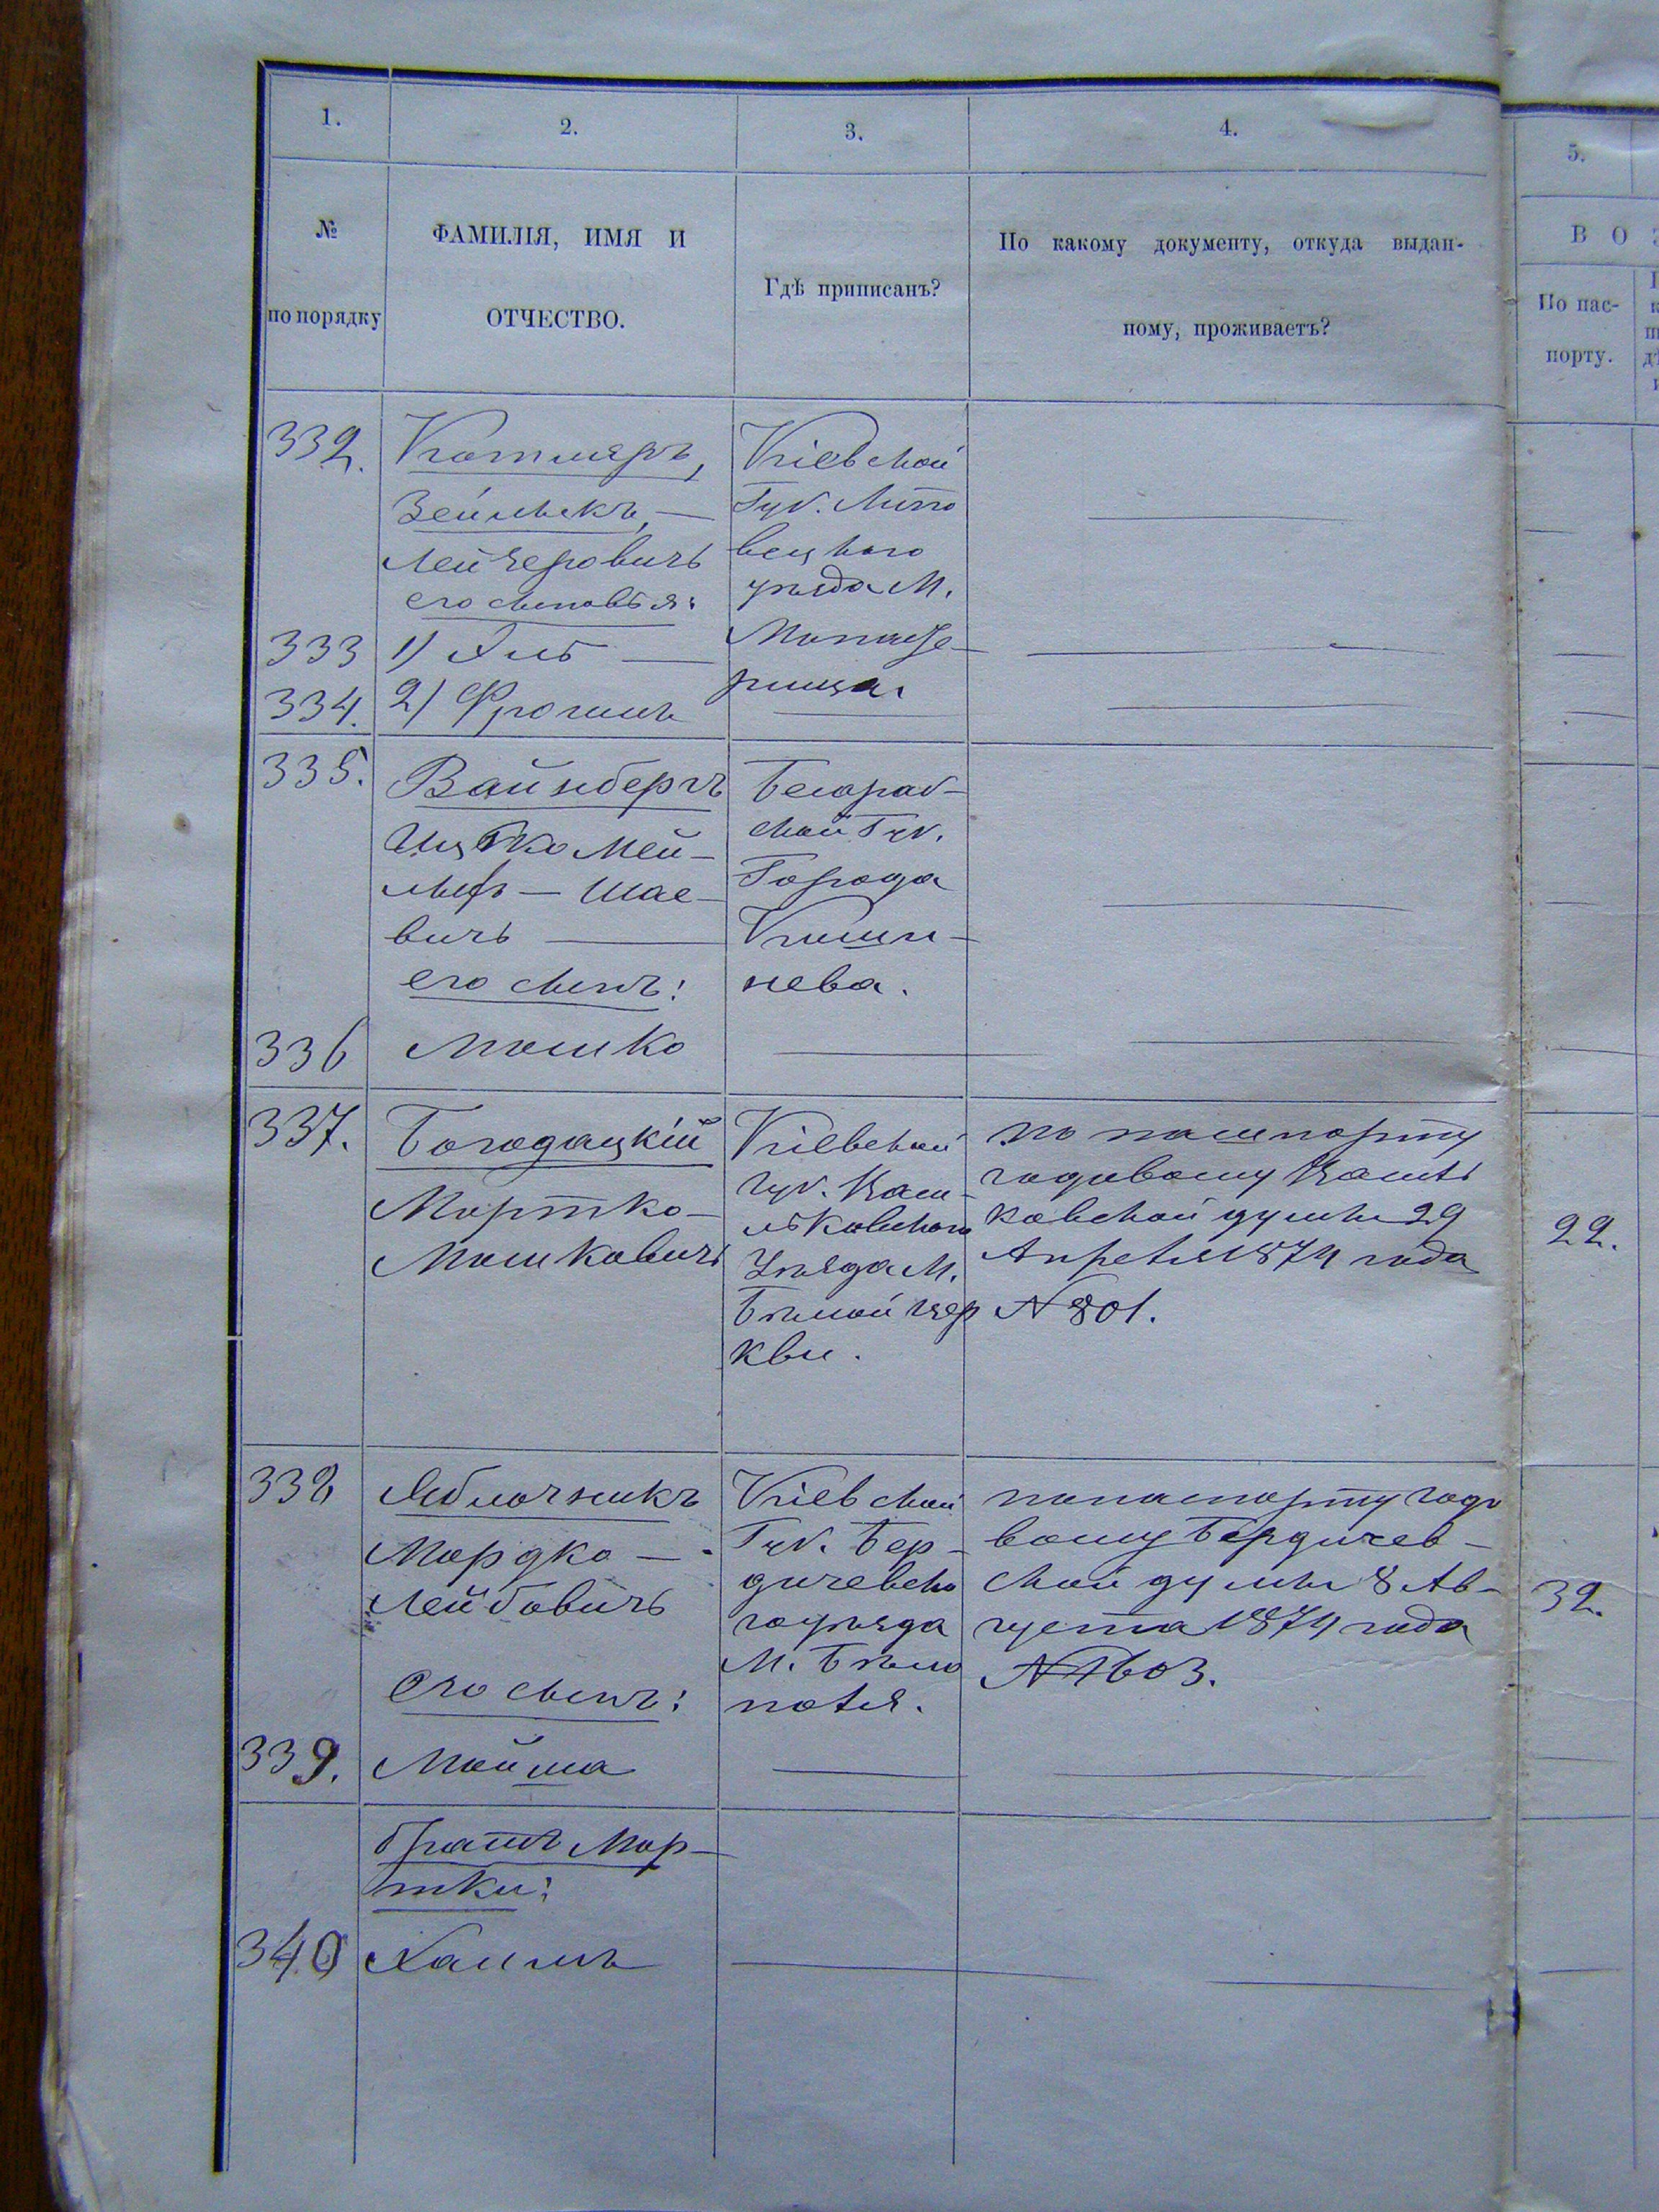 1.
2.
3.
4.
5.
№
по порядку
ФАМИЛІЯ, ИМЯ И
ОТЧЕСТВО.
Гдѣ приписанъ?
По какому документу, откуда выдан-
ному, проживаетъ?
В О З
По пас-
порту.
332.
Котляръ,
Зейликъ, —
Лейзеровичъ
его сыновья:
Кіевской
Губ. Липо
вецкаго
уѣзда М.
Монасте-
рища.
333
1)
334.
2) Фроимъ
335.
Вайнбергъ
Ицко Мей-
Шае-
вичъ
его сынъ:
Бесараб-
ской Губ.
Города
Киши-
нева.
336
Мошко
337.
Богодацкій
Мортко-
Мошковичъ
Кіевской
губ. Васи-
льковскаго
Уѣзда М.
Бѣлой Цер
кви.
по пашпорту
годовому Василь
ковской думы 29
Апреля 1874 года
№ 801.
22.
338
Яблочникъ
Мордко —
Лейбовичъ
Его сынъ:
Кіевской
Губ. Бер-
дичевска
го уѣзда
М. Бѣло
поля.
по паспорту годо
вому Бердичев-
ской думы 8 Ав-
густа 1874 года
№ 1603.
32.
339.
Мойша
братъ Мор-
тки:
340
Хаимъ